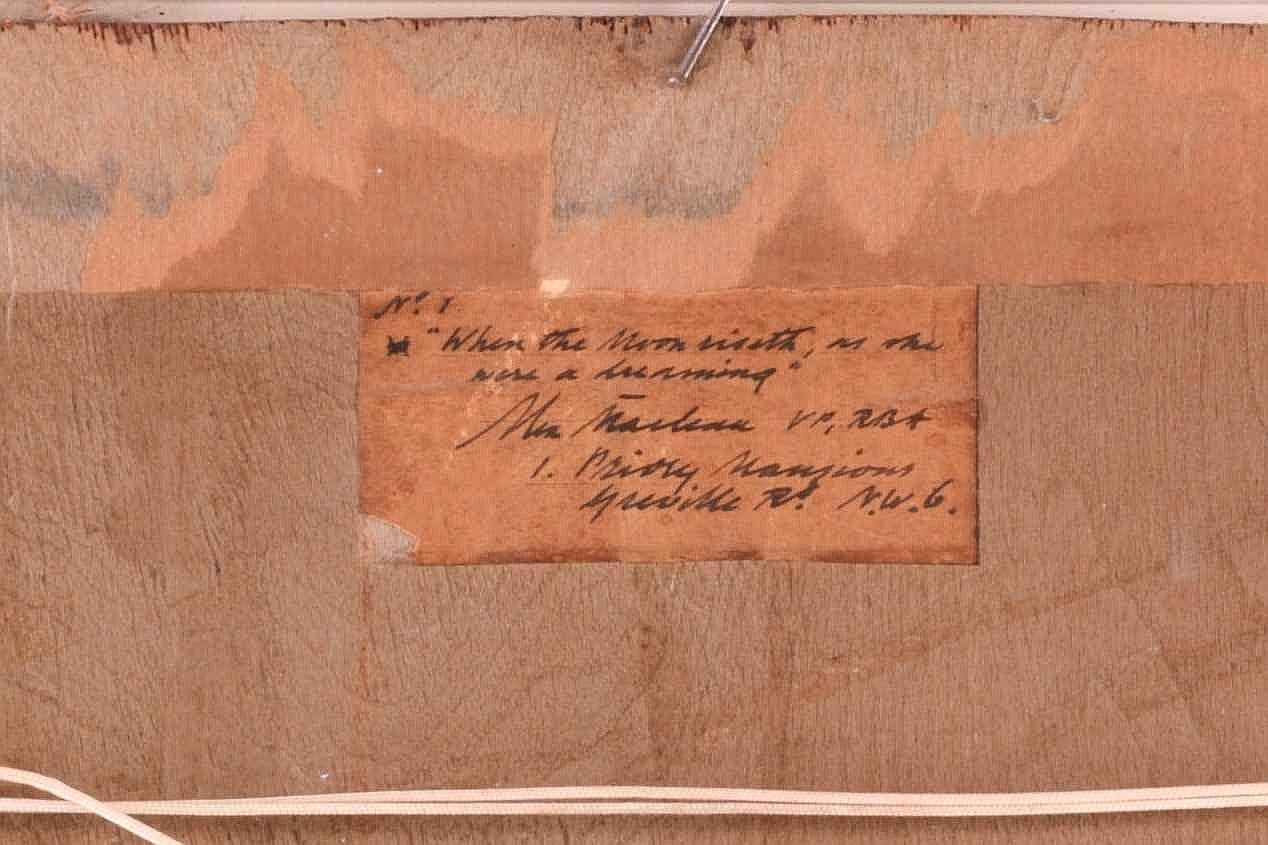 Nº 1
"When the Moon riseth, as she
were a dreaming"
Alex Maclean VP, RBA
1. Priory Mansions
Greville Rd N.W.6.